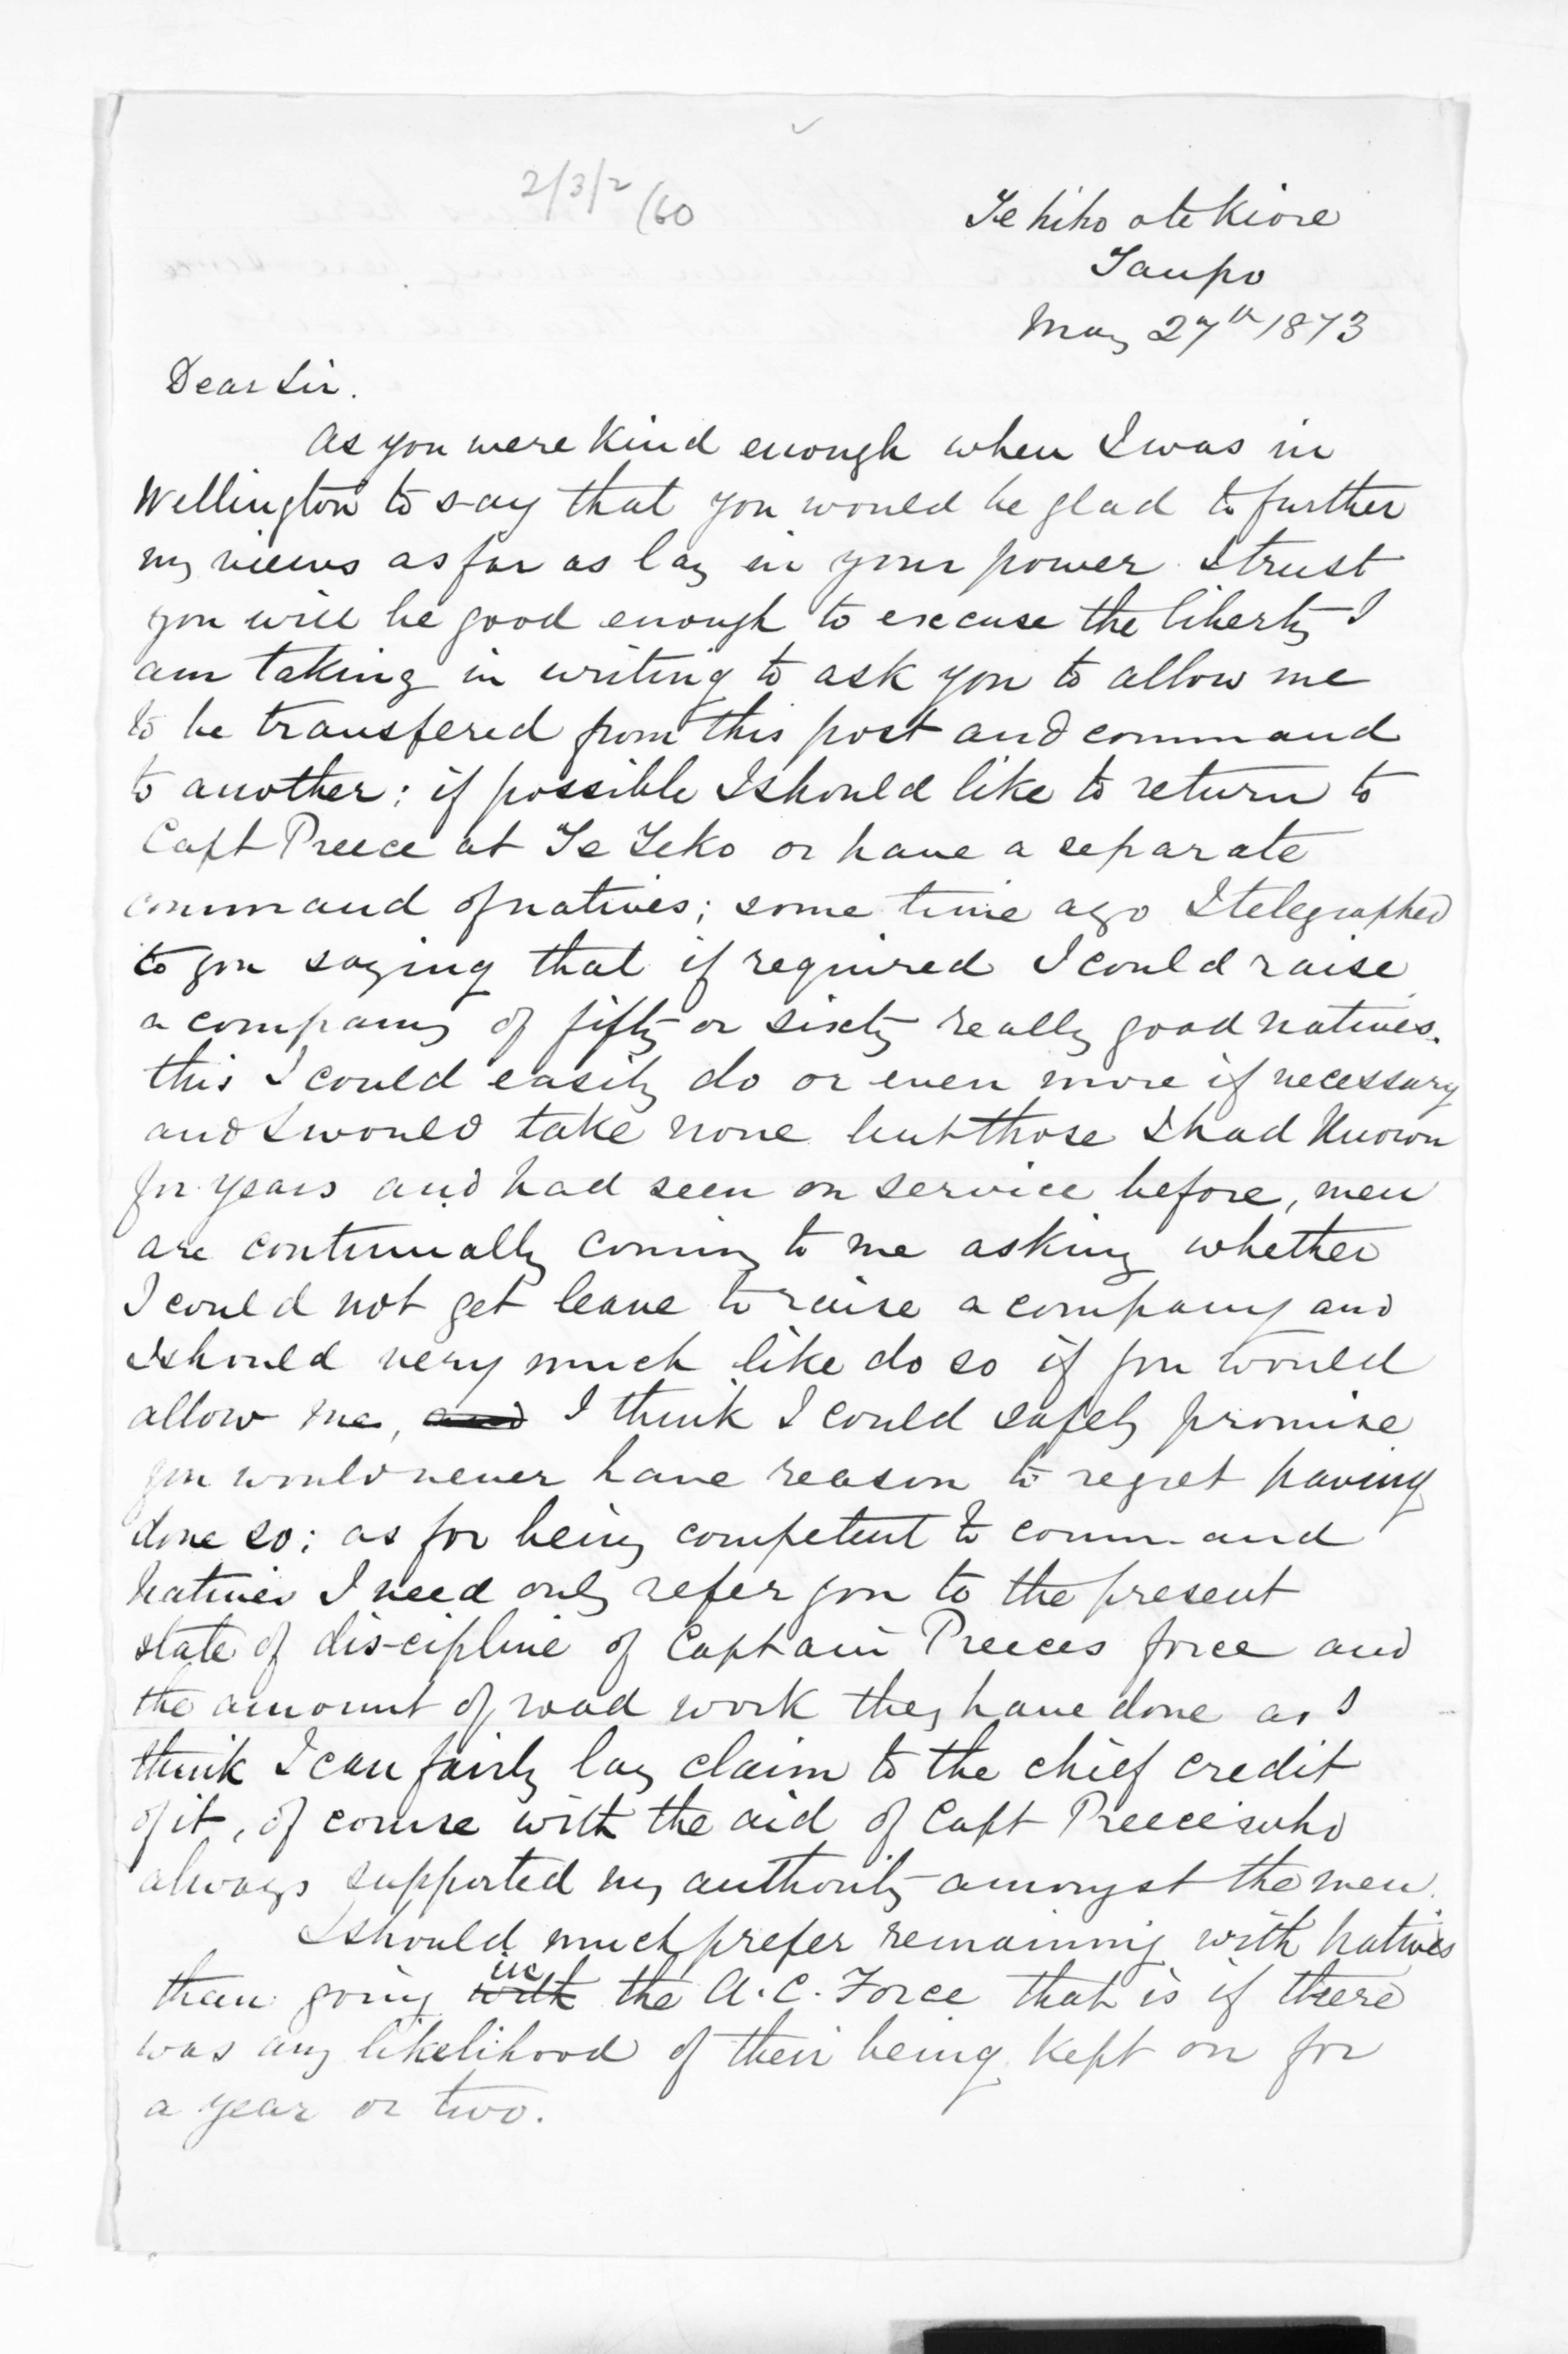 2/3/2
(60
Te hiko ote Kiore
Taupo
May 27th 1873
Dear Sir.
As you were kind enough when I was in
Wellington to say that you would be glad to further
my views as far as lay in your power I trust
you will be good enough to excuse the liberty I
am taking in writing to ask you to allow me
to be transfered from this post and command
to another: if possible I should like to return to
Capt Preece at Te Teko or have a separate
command of natives; some time ago I telegraphed
to you saying that if required I could raise
a company of fifty or sixty really good natives.
this I could easily do or even more if necessary
and I would take none but those I had known
for years and had seen on service before, men
are continually coming to me asking whether
I could not get leave to raise a company and
I should very much like do so if you would
allow me, and I think I could safely promise
you would never have reason to regret having
done so; as for being competent to command
Natives I need only refer you to the present
state of discipline of Captain Preeces force and
the amount of road work they have done as I
think I can fairly lay claim to the chief credit
of it, of course with the aid of Capt Preece who
always supported my authority amongst the men.
I should much prefer remaining with Natives
in
than going with the A.C. Force that is if there
was any likelihood of their being kept on for
a year or two.